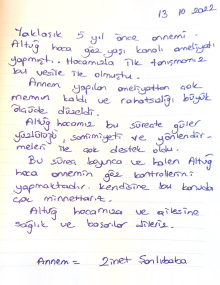 13 10 2022
Yaklaşık 5 yıl önce annemi
Altuğ hoca göz yaşı kanalı ameliyatı
yapmıştı. Hocamızla ilk tanışmamız
bu vesile ile olmuştu.
Annem yapılan ameliyattan çok
memnun kaldı ve rahatsızlığı büyük
ölçüde düzeldi.
Altuğ hocamız bu süreçte güler
yüzlülüğü, samimiyeti ve yönlendir-
meleri ile çok destek oldu.
Bu süreç boyunca ve halen Altuğ
hoca annemin göz kontrollerini
yapmaktadır. Kendisine bu konuda
çok minnettarız.
Altuğ hocamıza ve ailesine
sağlık ve başarılar dileriz.
Annem = Zinet Sonlubaba